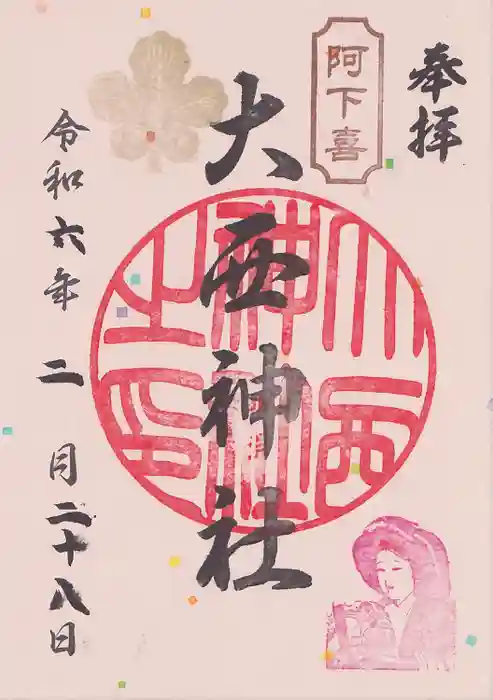 奉拝
阿下喜
大西神社
大西神社之印
令和六年二月二十八日